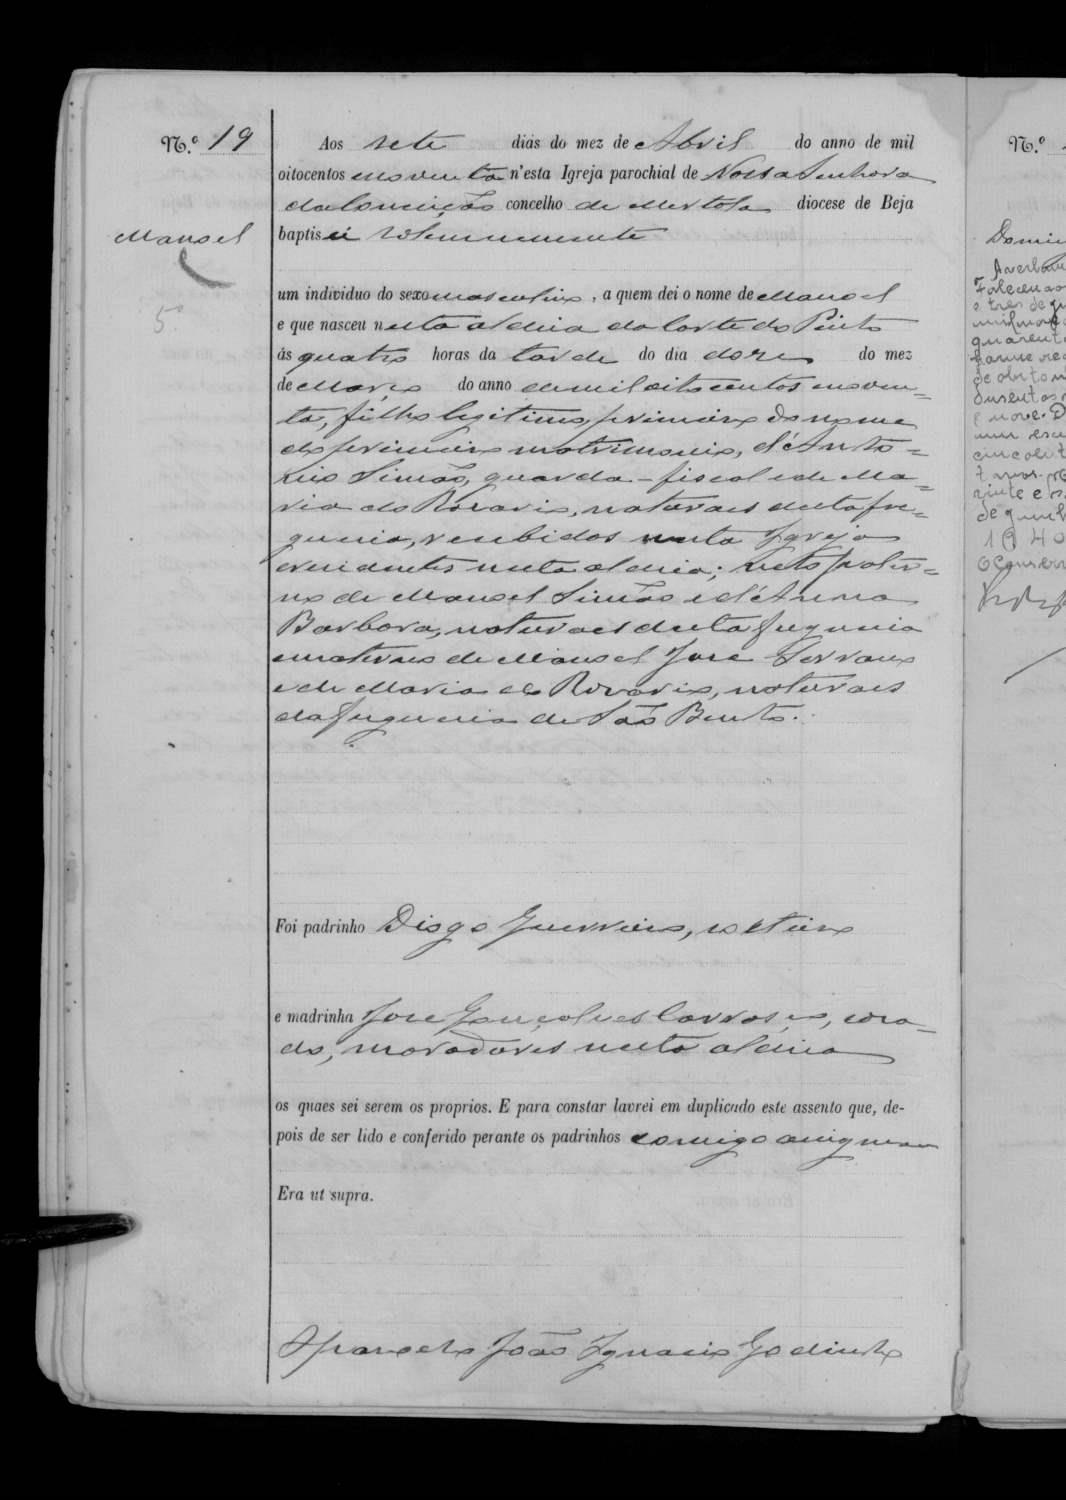 N.º 19
Manoel
5º
Aos sete dias do mez de Abril do anno de mil
oitocentos e noventa n'esta Igreja parochial de Nossa Senhora
da Conceição concelho de Mertola diocese de Beja
baptisei solemnemente
um individuo do sexo masculino, a quem dei o nome de Manoel
e que nasceu nesta aldeia da Corte do Pinto
ás quatro horas da tarde do dia doze do mez
de Março do anno de mil oitocentos e noven=
ta, filho legitimo, primeiro do nome
do primeiro matrimonio, d'Anto=
nio Simão, guarda-fiscal e de Ma=
ria do Rosario, naturaes desta fre=
guesia, recebidos nesta Igreja
e residentes nesta aldeia; neto pater=
no de Manoel Simão e d'Anna
Barbara, naturaes desta freguesia
e materno de Manoel José Serrano
e de Maria do Rosario, naturaes
da freguesia de São Bento.
Foi padrinho Diogo Guerreiro, solteiro
e madrinha José Gonçalves, casa-
do, moradores nesta aldeia
os quaes sei serem os proprios. E para constar lavrei em duplicado este assento que, de-
pois de ser lido e conferido perante os padrinhos comigo assignam
Era ut supra.
O parocho João Ignacio Godinho
N.º
Domin
Falleceu ao
1940